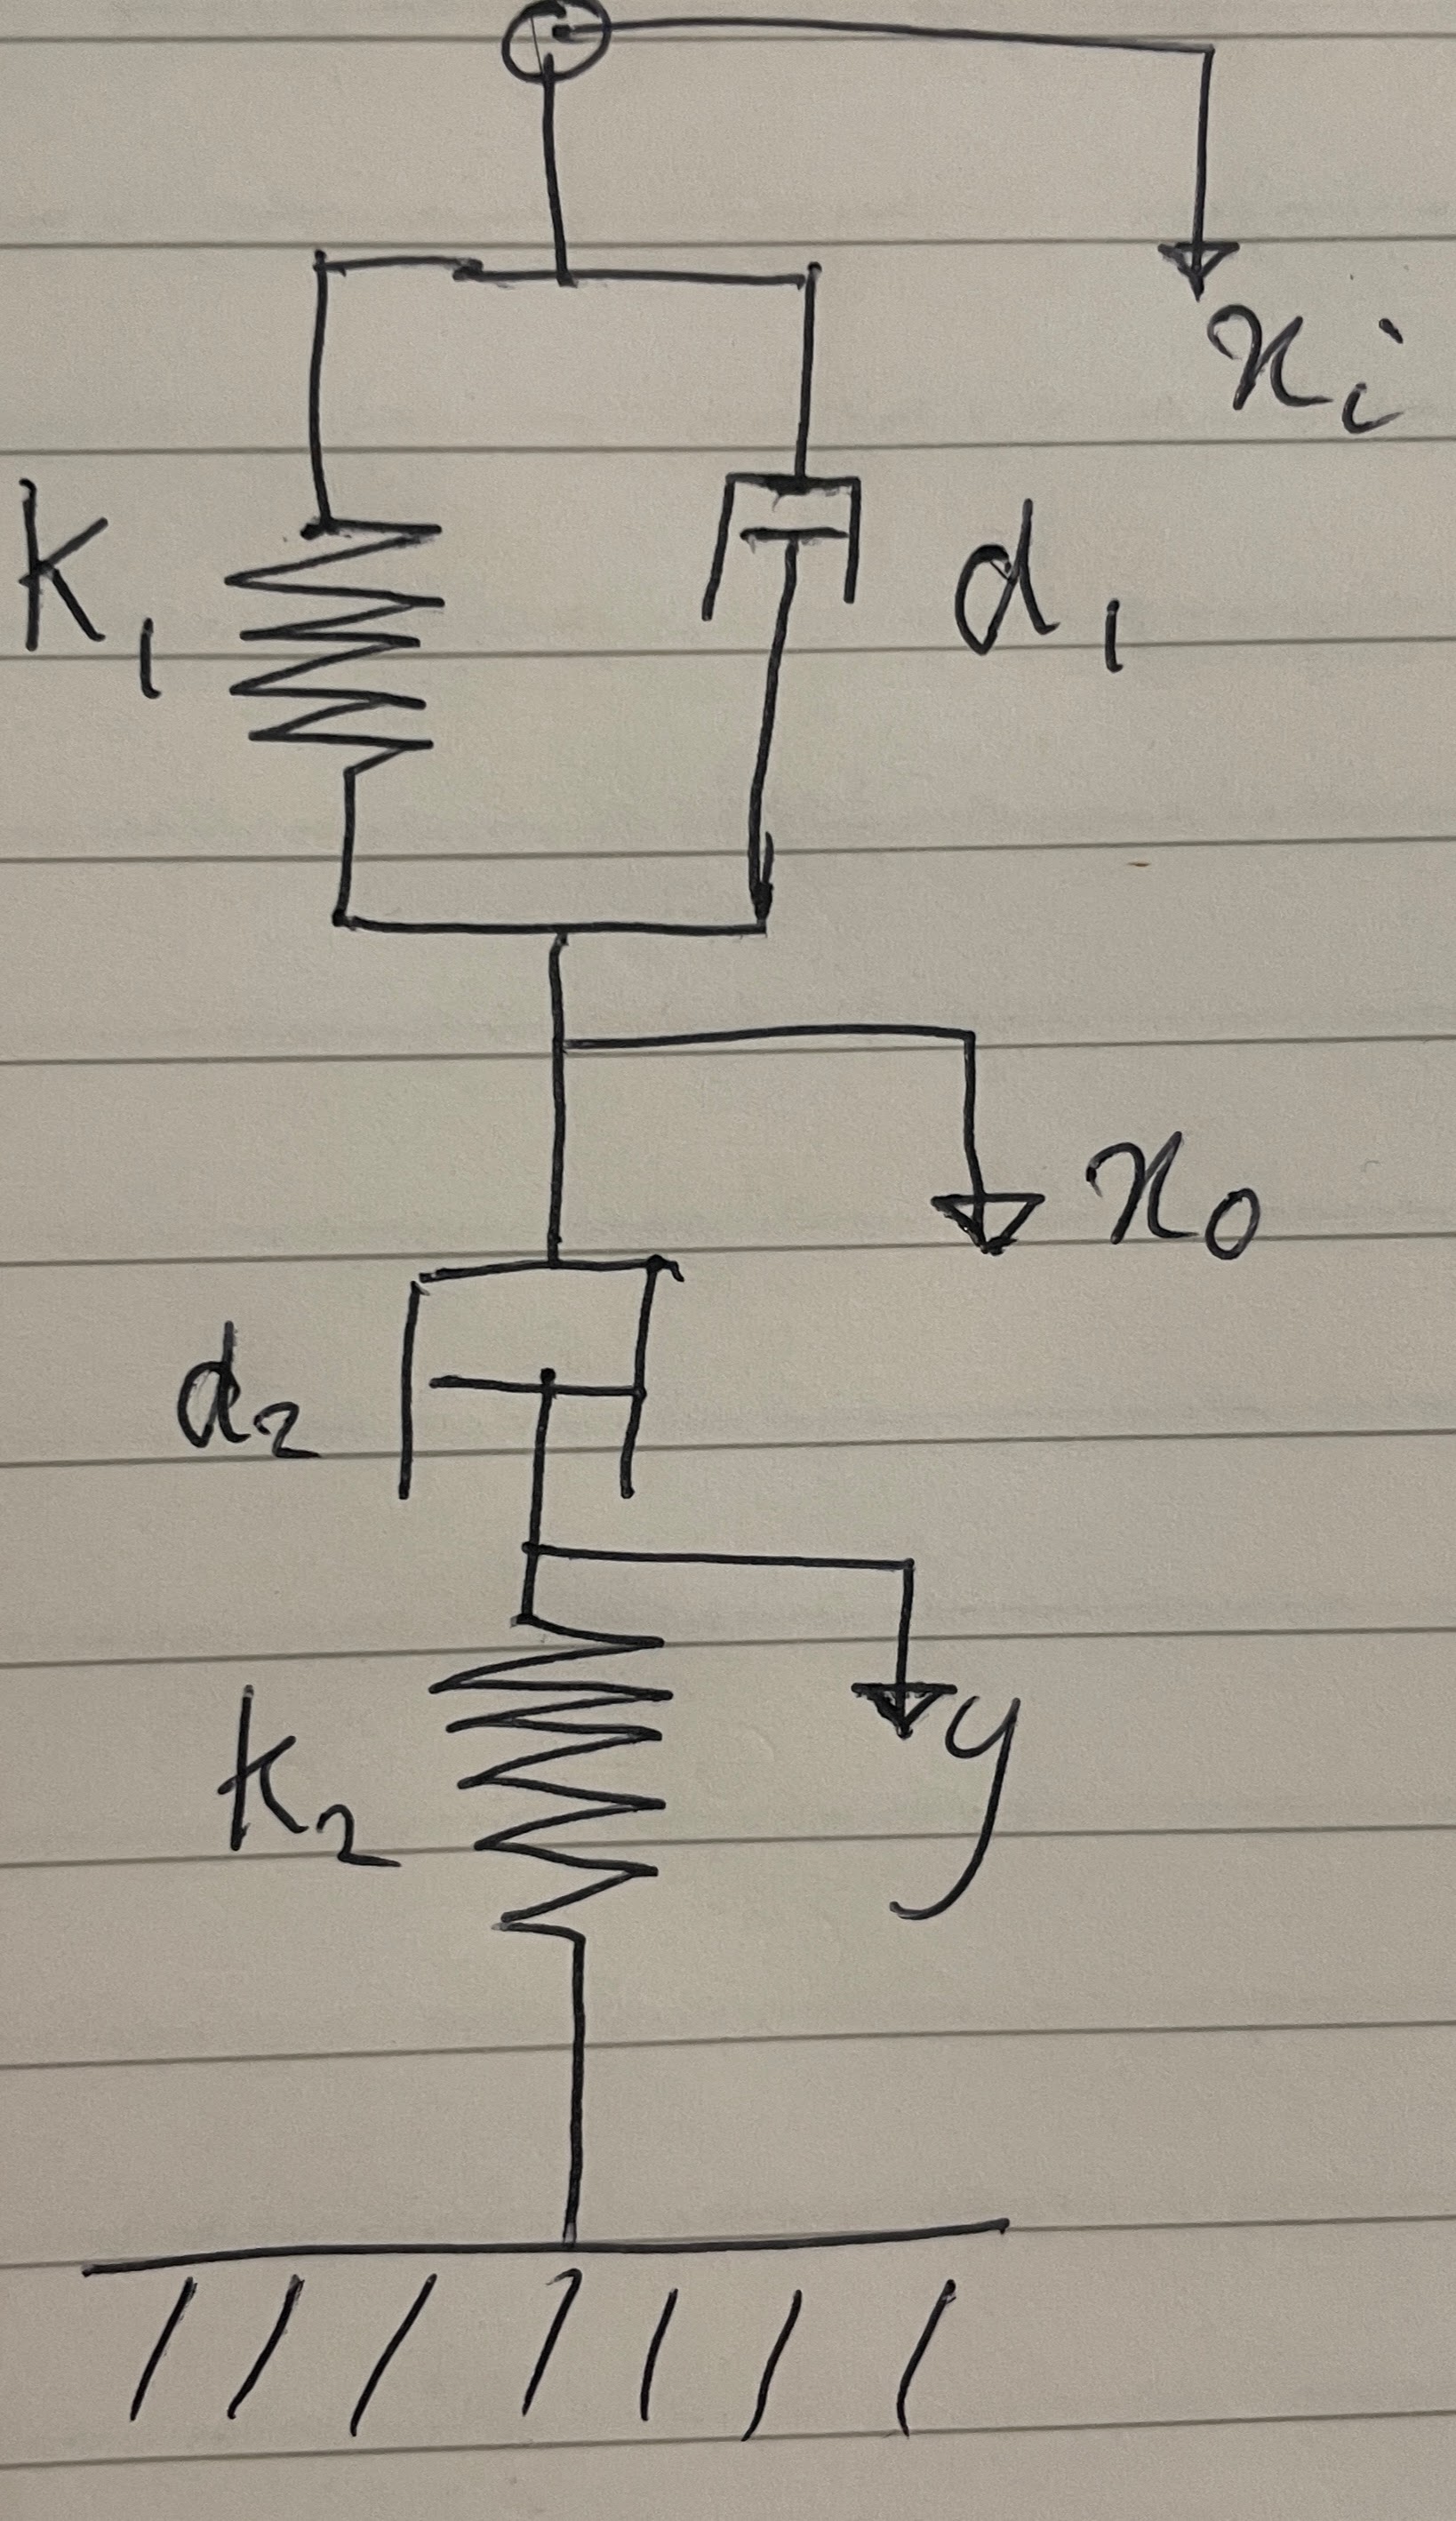 xi
K1
d1
x0
d2
y
k2